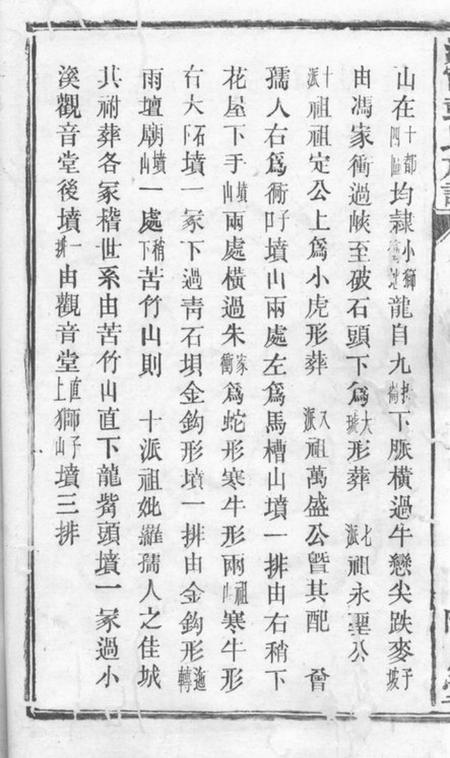 山在十都四區均隸小獅龍自九下脈橫過牛戀尖跌麥子坡
由馮家衝過峽至破石頭下爲大形葬　七派祖永璽公
十派祖祖定公上爲小虎形葬　又派祖萬盛公曁其配　曾
孺人右爲衝吁墳山兩處左爲馬槽山墳一排由右稍下
花屋下手墳山兩處橫過朱家衝爲蛇形寒牛形兩祖山寒牛形
右大石下墳一冢下過靑石垻金鈎形墳一排由金鈎形迤轉
雨壇廟墳山一處稍下苦竹山則　十派祖妣羅孺人之佳城
其祔葬各冢稽世系由苦竹山直下龍觜頭墳一冢過小
溪觀音堂後墳一排由觀音堂直上獅子山墳三排